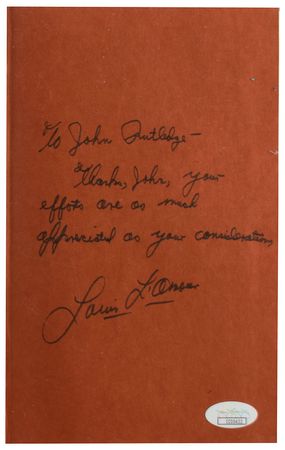 To John Rutledge —
Thanks, John, your
efforts are as much
appreciated as your consideration
Louis L'Amour